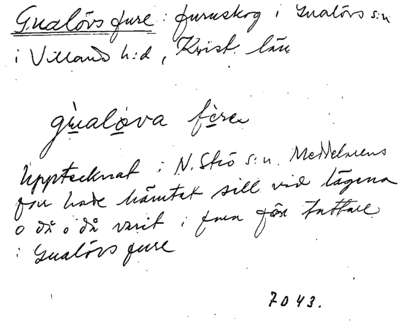 Gualövs fure : furuskog i Gualövs s:n
i Villands h:d, Krist. län
gualova fure
Upptecknat i N. Strö s:n. Meddelarens
far hade hämtat sill vid lägena
o då o då varit i fara för tattare
i Gualövs fure
7043.